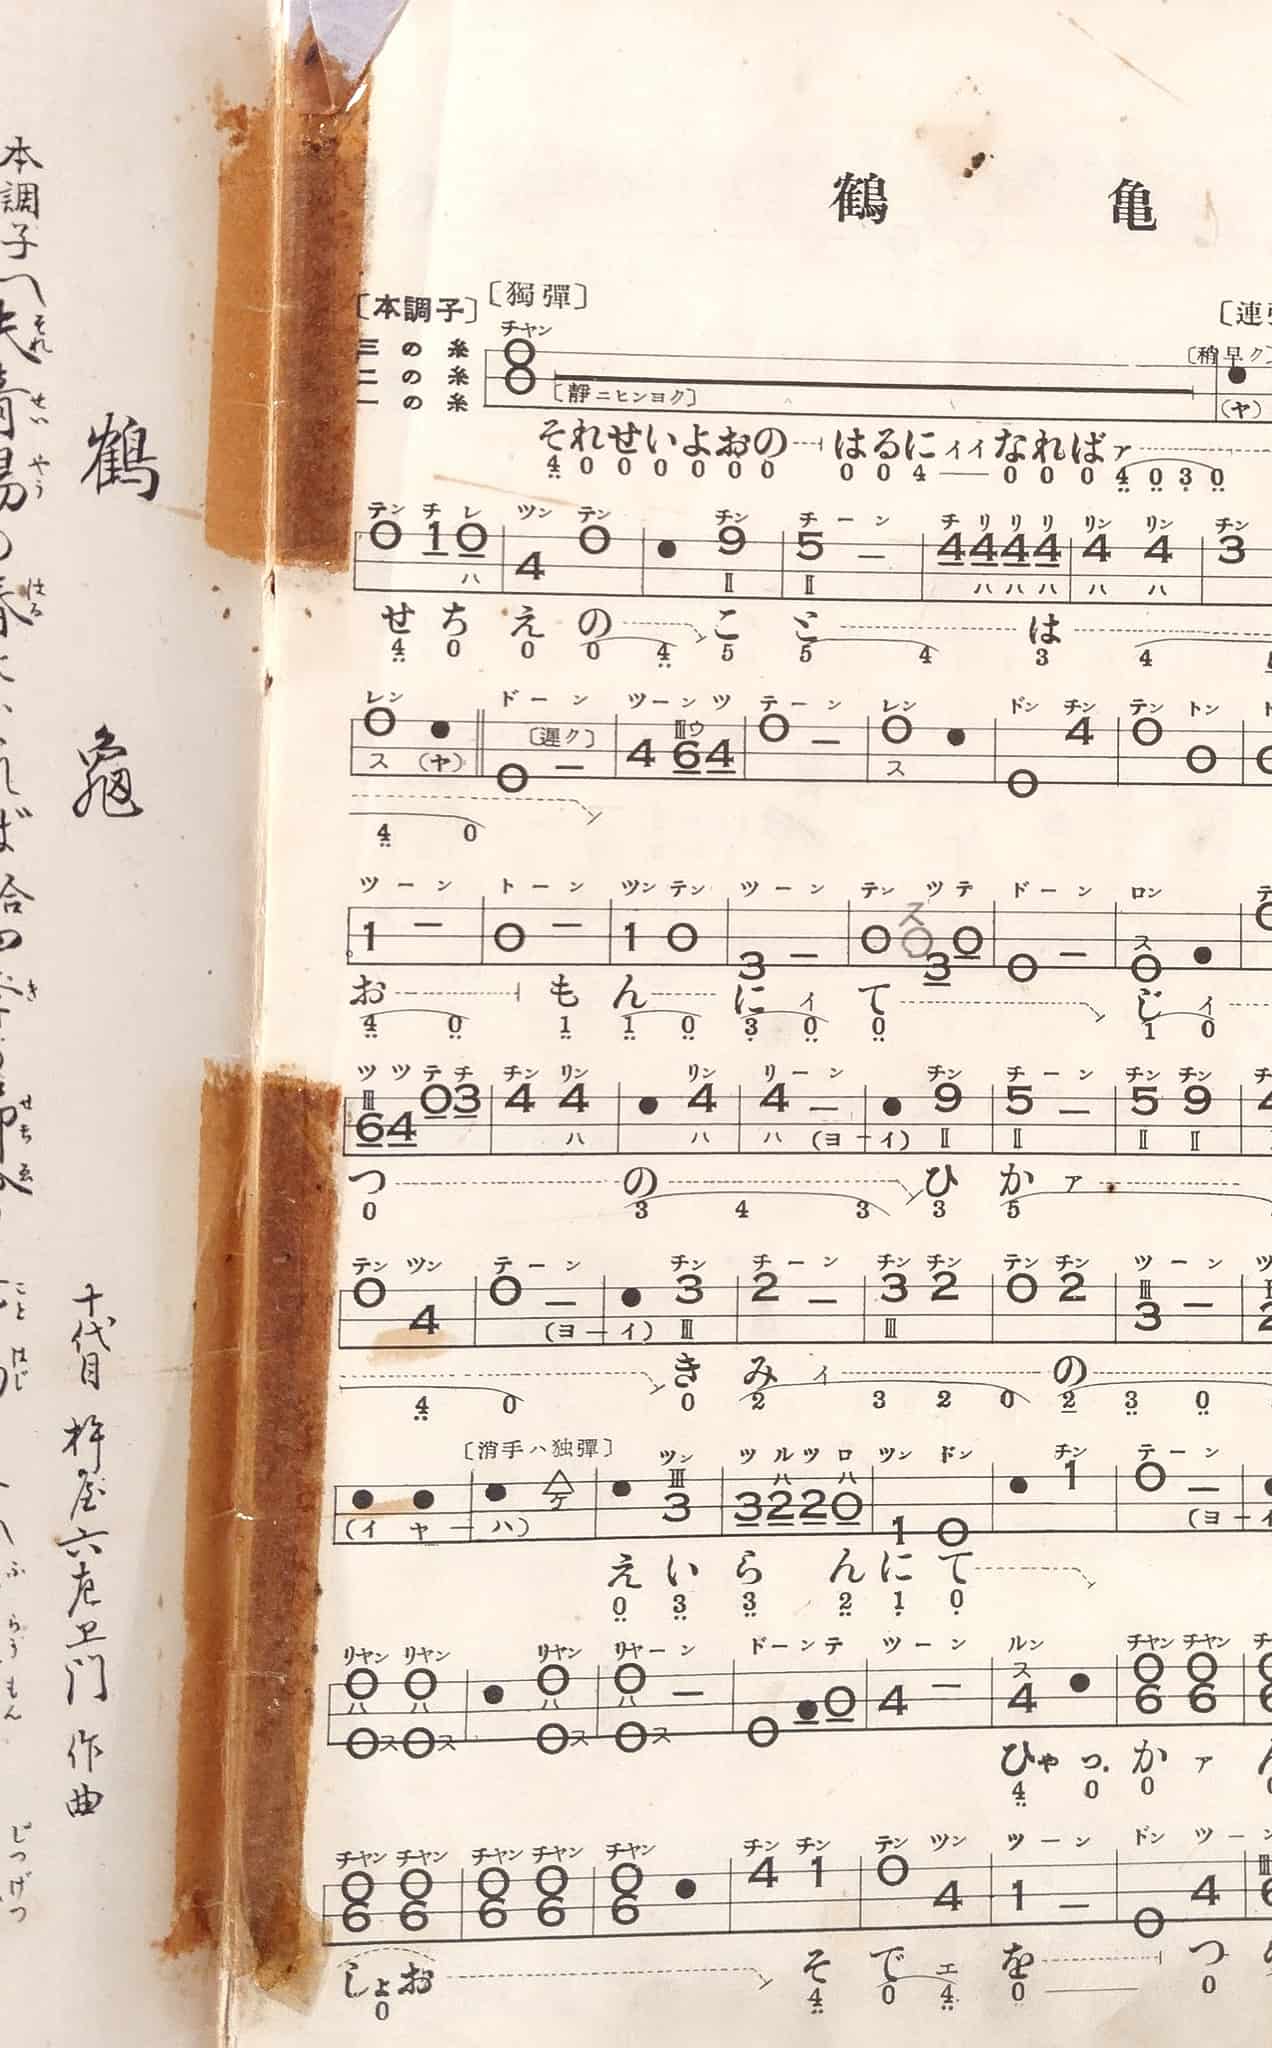 鶴 亀
〔本調子〕 〔獨彈〕
チヤン
三の糸
二の糸
一の糸
〔靜ニヒンヨク〕 〔稍早ク〕
(ヤ)
それせいよおの はるに イイ なれば ァ
4 0 0 0 0 0 0 0 0 4 0 0 0 4 0 3 0
テン チ レ ツン テン チン チ ー ン チ リ リ リ リン リン チン
0 1 0 4 0 ● 9 5 ー 4 4 4 4 4 4 3
ハ Ⅱ Ⅱ ハ ハ ハ ハ ハ
せ ち え の こ と は
4 0 0 0 4 5 5 4 3 4
レン ド ー ン ツ ー ン ツ テ ー ン レン ドン チン テン トン
〔遅ク〕 Ⅲウ
0 ● 0 ー 4 6 4 0 ー 0 ● 0 4 0 0
ス (ヤ) ス
4 0
ツ ー ン ト ー ン ツン テン ツ ー ン テン ツ テ ド ー ン ロン
ス ス
1 ー 0 ー 1 0 3 ー 0 0 3 0 0 ー 0 ●
お も ん に ィ て じ ィ
4 0 1 1 0 3 0 0 1 0
ツ ツ テ チ チン リン リン リ ー ン チン チ ー ン チン チン
Ⅲ
6 4 0 3 4 4 ● 4 4 ー ● 9 5 ー 5 9
ハ ハ ハ (ヨ ー イ) Ⅱ Ⅱ Ⅱ Ⅱ
つ の ひ か ァ
0 3 4 3 3 5
テン ツン テ ー ン チン チ ー ン チン チン テン チン ツ ー ン
Ⅲ
0 4 0 ー ● 3 2 ー 3 2 0 2 3 ー
(ヨ ー イ) Ⅲ Ⅲ
き み ィ の
4 0 0 2 3 2 0 2 3 0
〔消手ハ独彈〕
ツン ツ ル ツ ロ ツン ドン チン テ ー ン
Ⅲ ハ ハ
● ● ● △ ● 3 3 2 2 0 1 0 ● 1 0 ー
ケ
(イ ヤ ー ハ) (ヨ ー イ
え い ら ん に て
0 3 3 2 1 0
リヤン リヤン リヤン リヤ ー ン ド ー ン テ ツ ー ン ルン チヤン チヤン
ス
0 0 ● 0 0 ー 0 ● 0 4 ー 4 ● 0 0
ハ ハ ハ ハ 6 6
0ス 0ス 0ス 0ス
ひ ゃ っ か ァ
4 0 0
チヤン チヤン チヤン チヤン チヤン チン チン テン ツン ツ ー ン ドン ツ ー ン
0 0 0 0 0 ● 4 1 0 4 1 ー 0 4
6 6 6 6 6
しょお そ で ェ を つ
0 4 0 4 0 0
鶴
龜
十代目 杵屋六左ヱ門 作曲
本調子